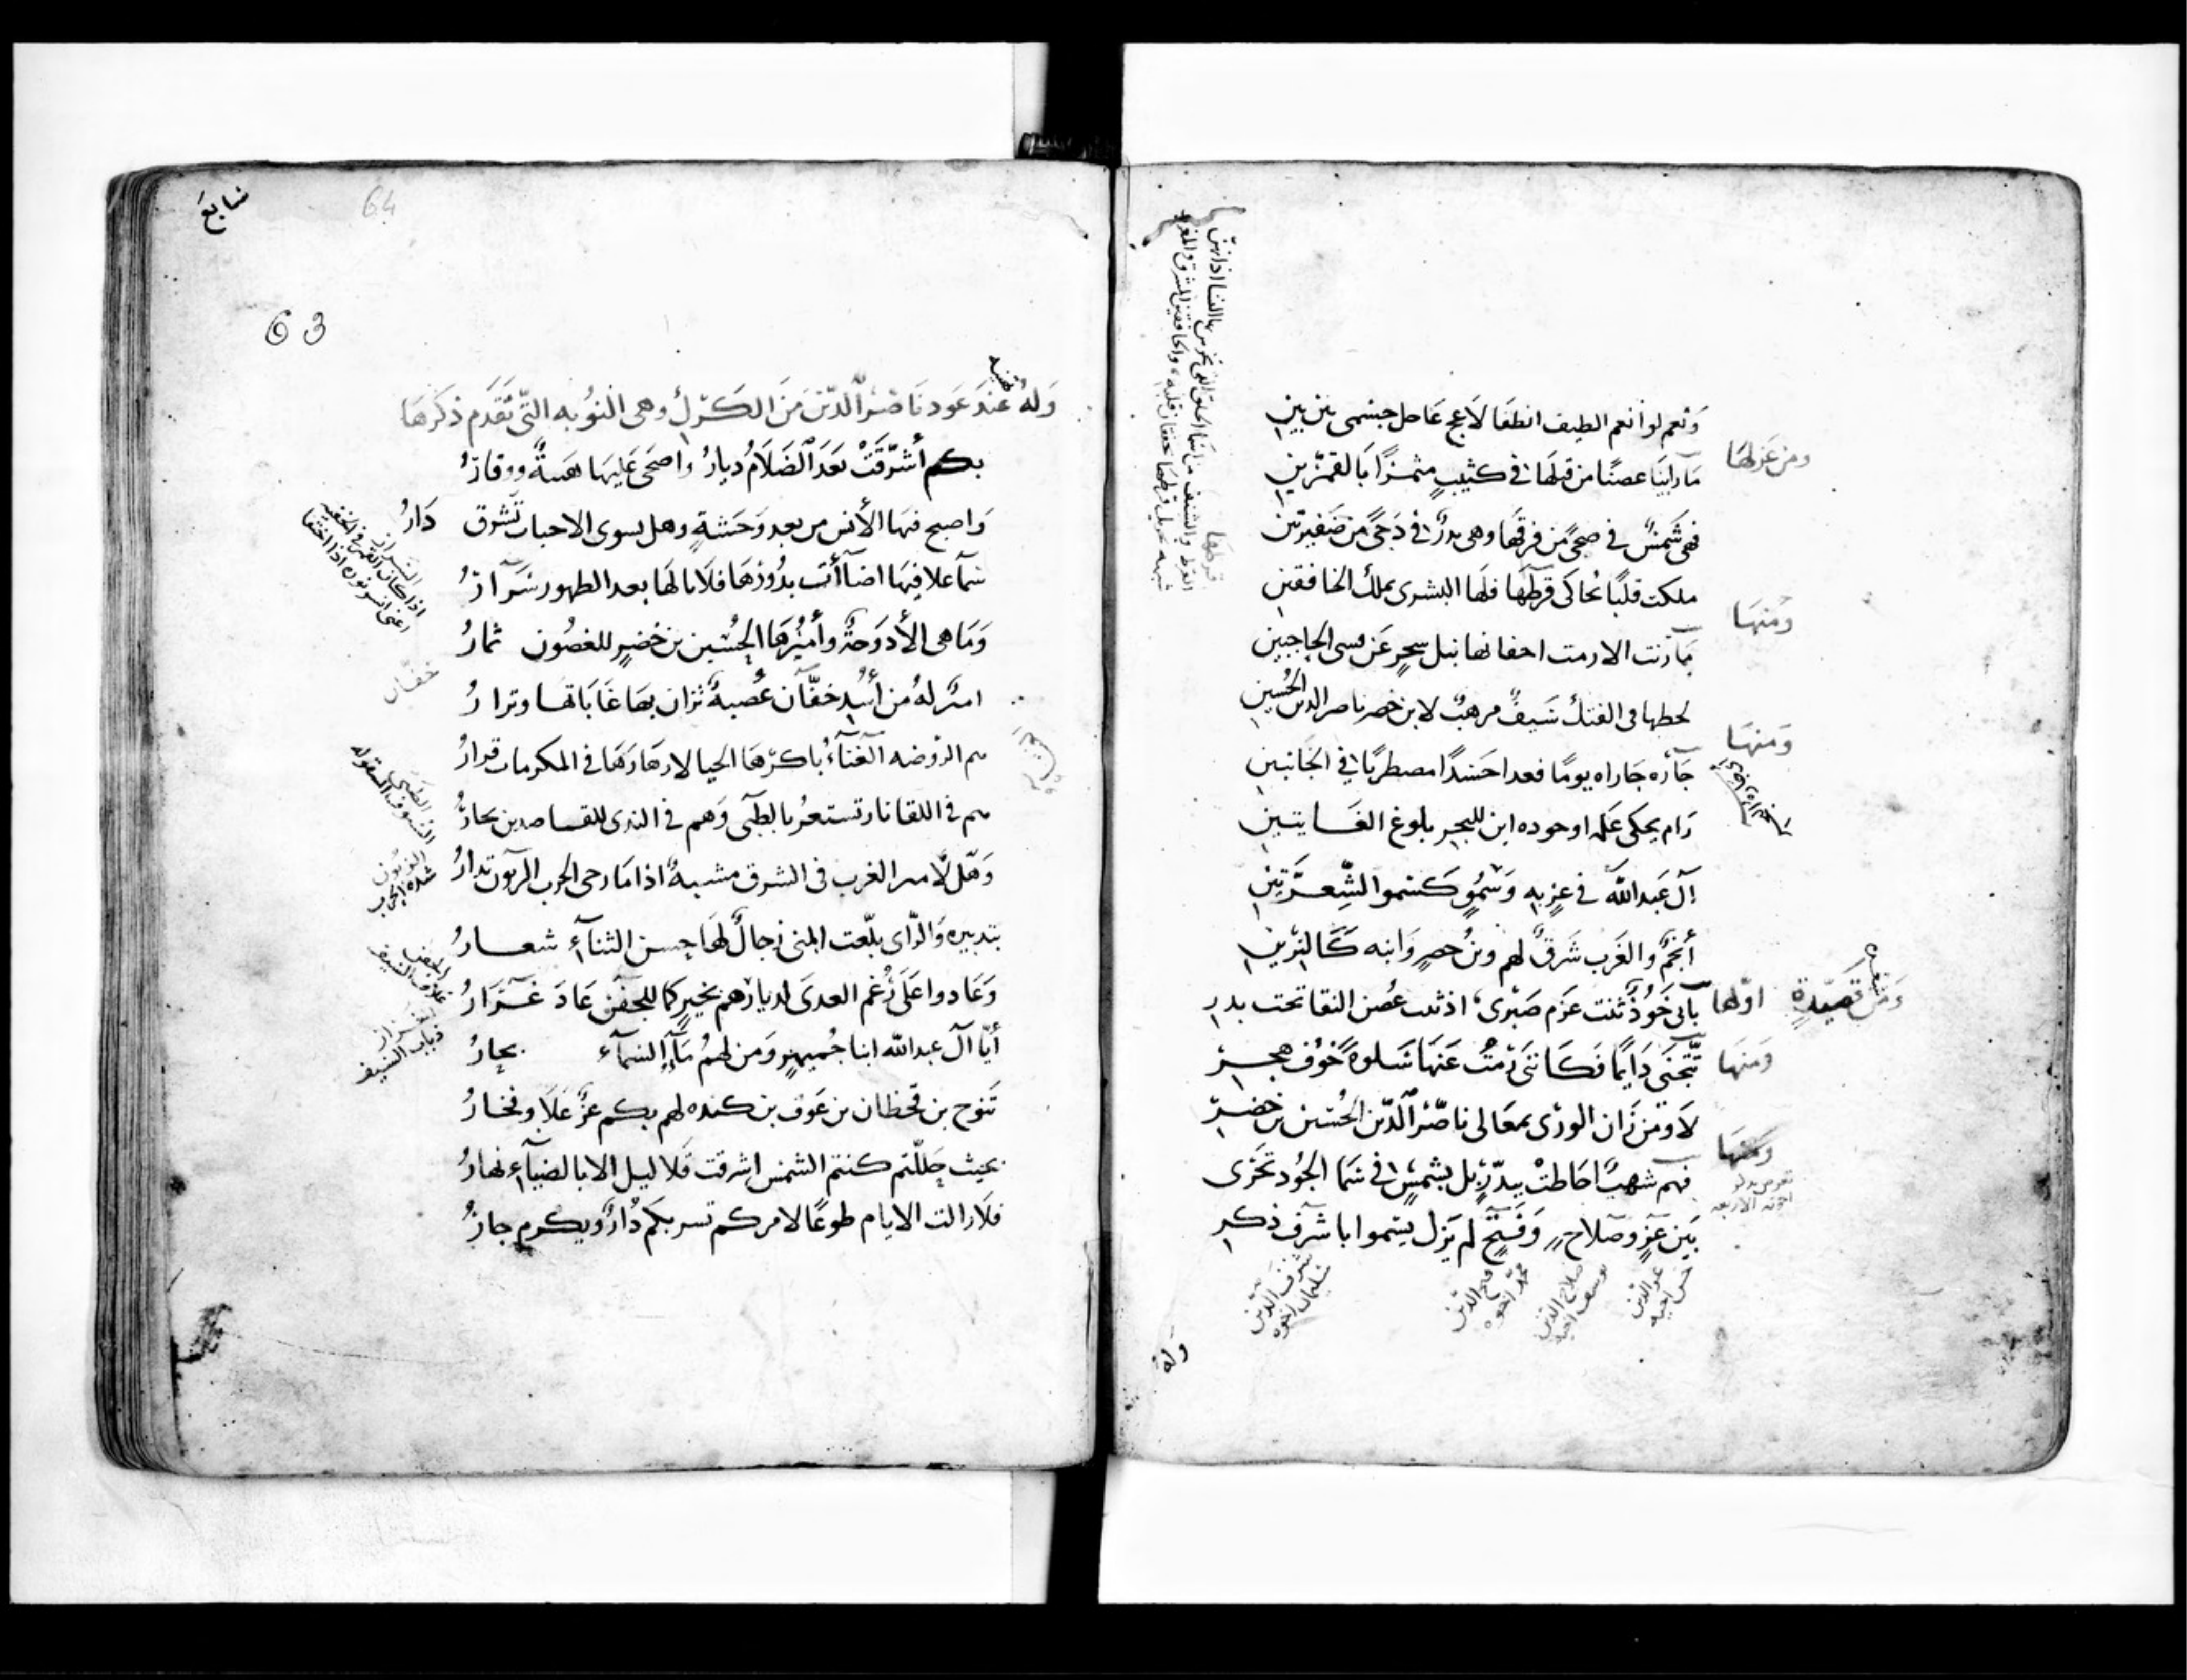 ونعم لو أنعم الطيف انطفا لاعج عاحل جسمى بين بين
ومن غزلها
ما راينا غصنًا من قبلها في كثيبٍ مثمرًا بالقمرين
فهى شمسٌ في ضحى من فرقها وهى بدرٌ في دجى من ضفيرتين
ملكت قلبًا يحاكى قرطها فلها البشرى بملك الخافقين
ومنها
ما رنت الا رمت اجفانها نبل سحرٍ عن قسى الحاجبين
لحظها فى الفتك سيفٌ مرهبٌ لابن خضر ناصر الدين الحسين
ومنها
جاره جاراه يومًا فغدا حسدًا مضطربًا في الجانبين
رام يحكى علمه او جوده اين للبحر بلوغ الغايتين
آل عبد الله في عز به وسموٍ كسمو الشعرتين
أنجمٌ والغرب شرقٌ لهم وبن خضرٍ وابنه كالنيرين
ومن قصيدةٍ اولها
بأبى خودٌ ثنت عزم صبرى اذ ثنت غصن النقا تحت بدر
ومنها
تتجنى دايمًا فكاننى رمت عنها سلوةً خوف هجر
ومنها
لا ومن زان الورى بمعالى ناصر الدين الحسين بن خضر
فهم شهبٌ احاطت ببدرٍ بل بشمسٍ في سما الجود تجرى
بين عزٍ وصلاحٍ وفتحٍ لم يزل يسموا با شرف ذكر
عز الدين حسن اخيه
صلاح الدين يوسف اخيه
فتح الدين محمد اخوه
شرف الدين سليمان اخوه
قرطها
وله
سابع
64
63
وله تهنيه عند عود ناصر الدين من الكرك وهى النوبه التى تقدم ذكرها
بكم أشرقت بعد الظلام ديارُ واضحى عليها هيبةٌ ووقارُ
واصبح فيها الأنس من بعد وحشةٍ وهل بسوى الاحباب تشرق دارُ
سمآ علا فيها اضاأت بدورها فلا نالها بعد الظهور سرارُ
وما هى الا دوحةٌ وأميرها الحسين بن خضرٍ للغصون ثمارُ
اميرٌ له من أسد خفّان عصبةٌ تزان بها غاباتها وتزارُ
هم الروضه الغنآء باكرها الحيا لازهارها في المكرمات قرارُ
هم في اللقا نار تستعر بالظبى وهم في الندى للقاصدين بحارُ
وهل لامير الغرب فى الشرق مشبهٌ اذا ما رحى الحرب الزبون تدارُ
بتدبيره والراى بلّغت المنى رجالٌ لها حسن الثنآء شعارُ
وعادوا على رغم العدى لديارهم بخيرٍ كما للجفن عاد غرارُ
أيا آل عبد الله ابنا جميهرٍ ومن لهم مآء السمآء بحارُ
تنوح بن قحطان بن عوف بن كنده لهم بكم عزٌ علا وفخارُ
بحيث حللتم كنتم الشمس اشرقت فلا ليل الا بالضيآء نهارُ
فلا زالت الايام طوعًا لامركم تسر بكم دارٌ ويكرم جارُ
السرار
اذا كان القمر في الخفيه
اعنى انستر نوره اذا اختفا
خفّان
الظبى
السيوف المصقوله
الزبون
شدة الحرب
الجفن
غلاف السيف
الغرار
ذباب السيف